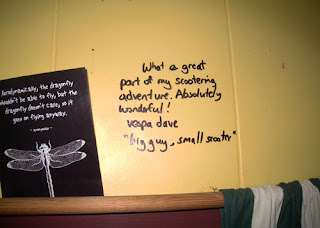 Aerodynamically, the dragonfly
shouldn't be able to fly, but the
dragonfly doesn't care, so it
goes on flying anyway.
What a great
part of my scootering
adventure. Absolutely
wonderful!
vespa dave
"big guy, small scooter"